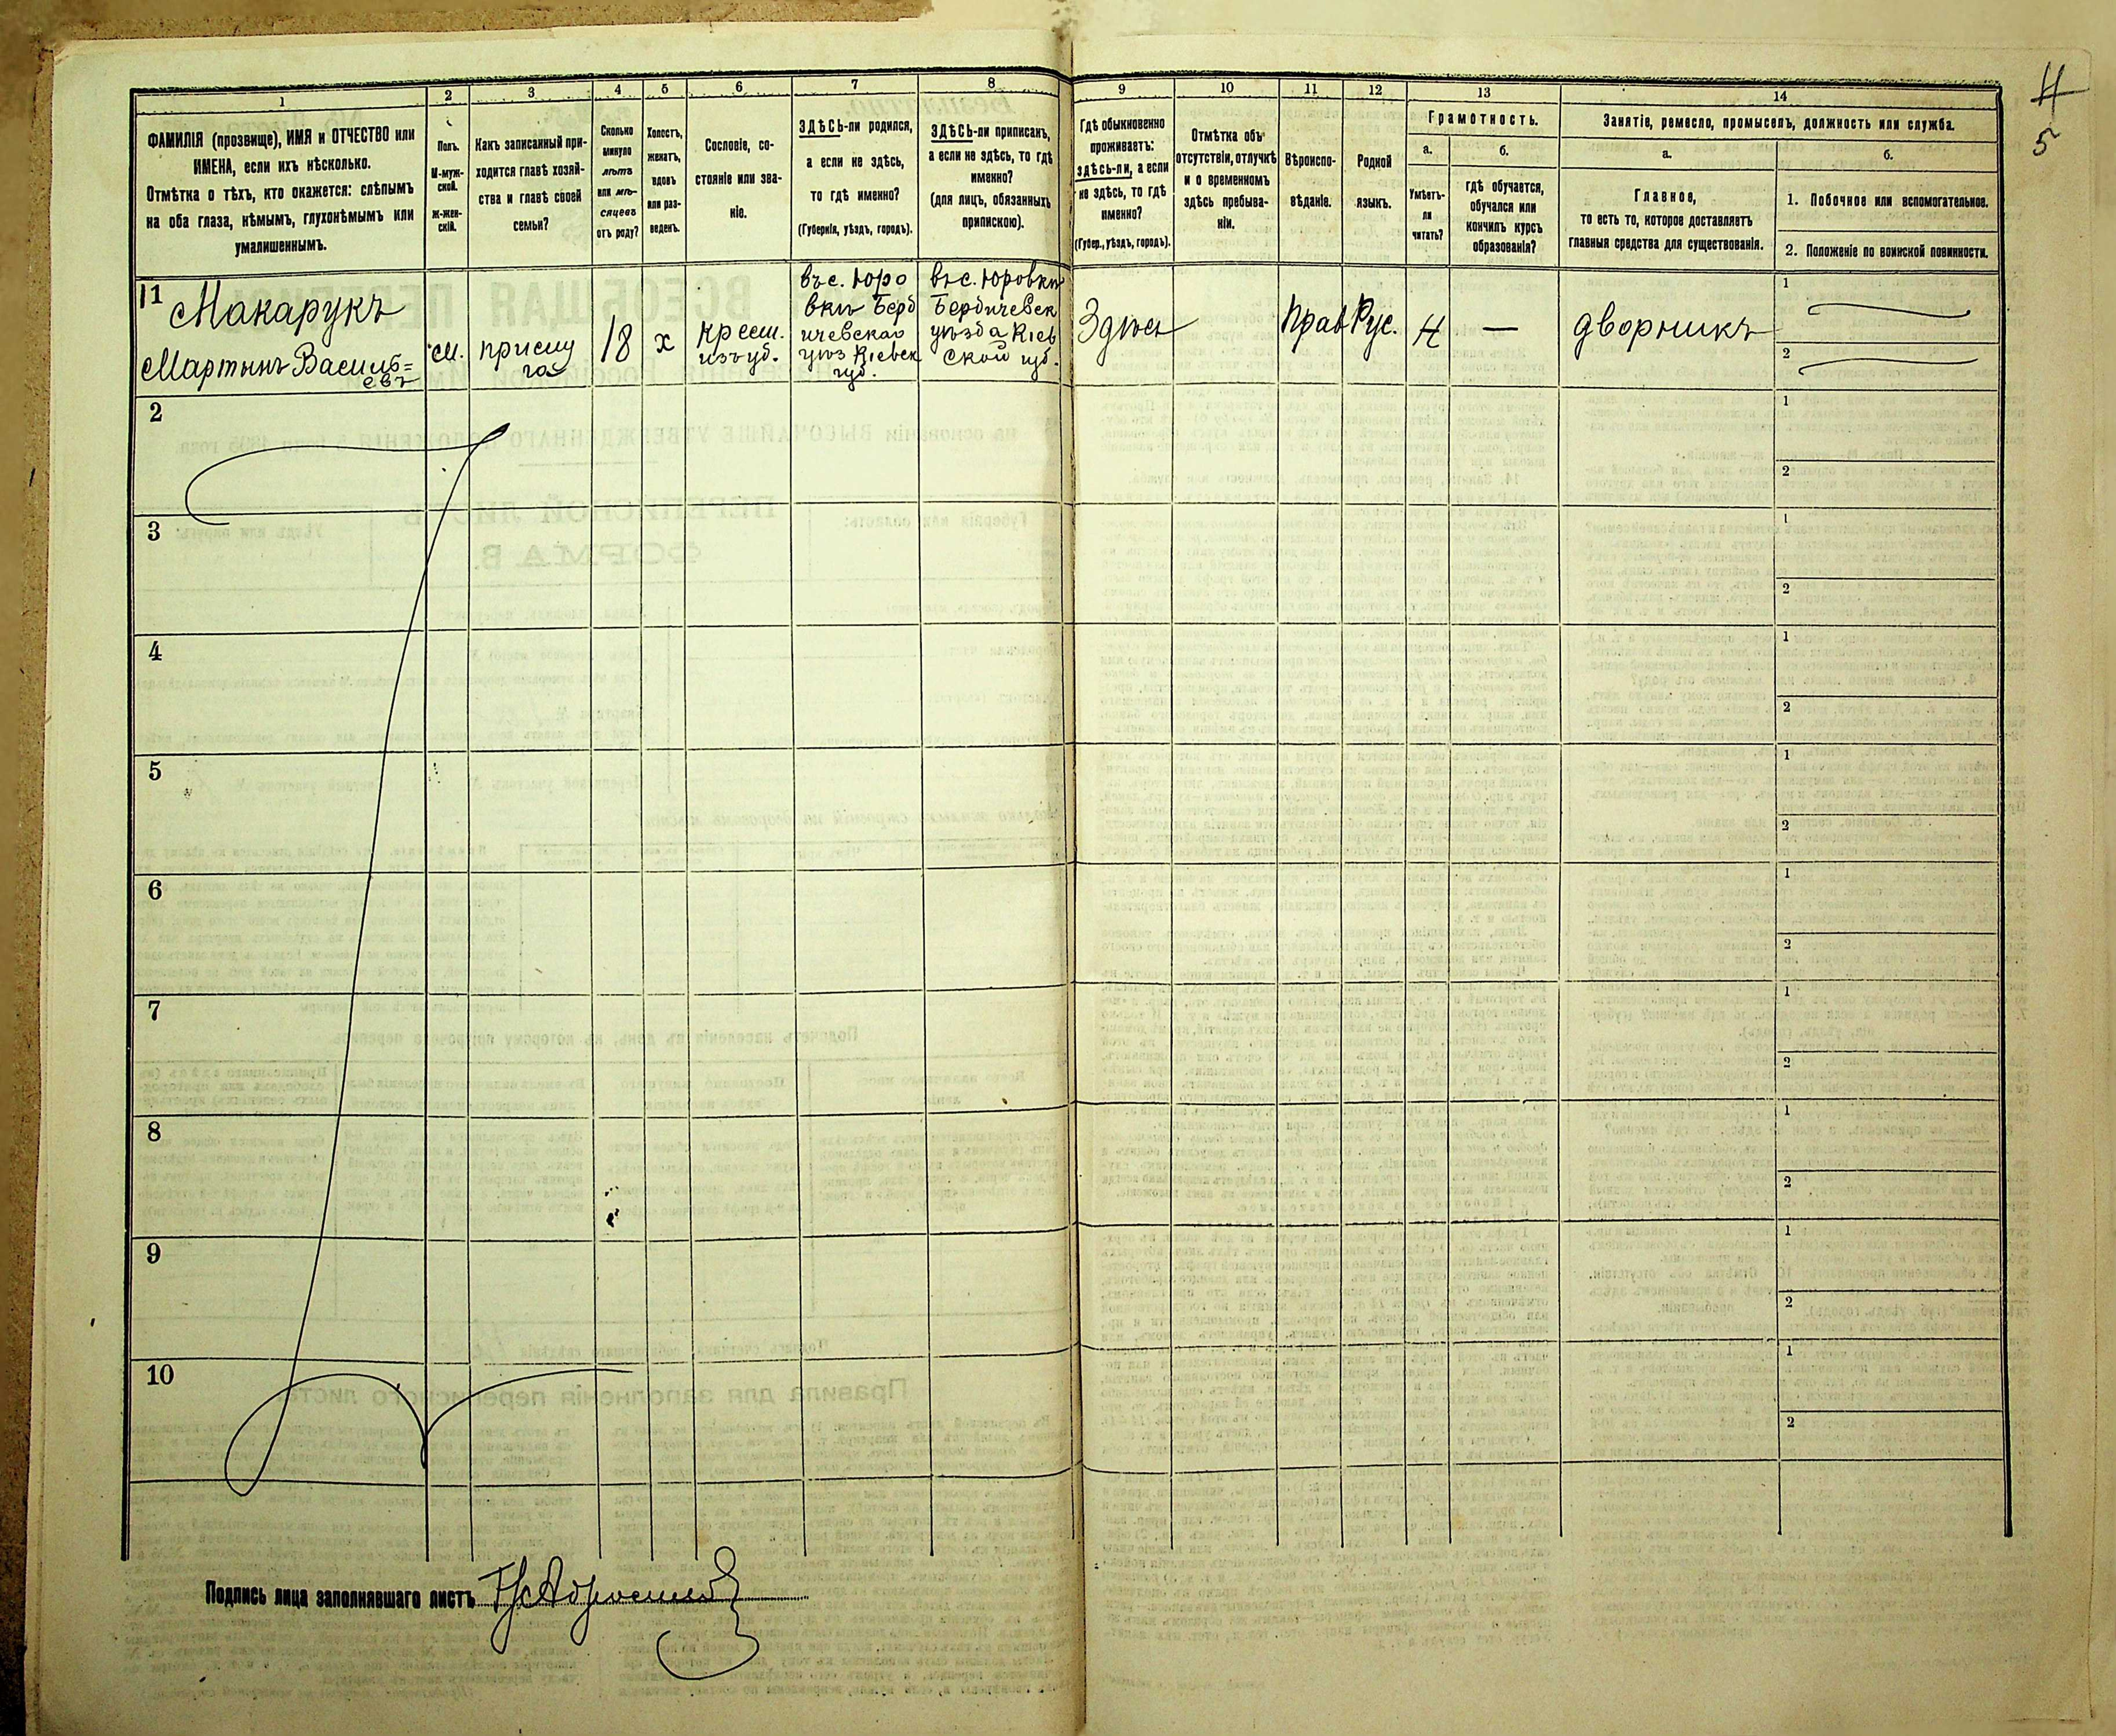 1
2
3
4
5
6
7
8
9
10
11
12
13
14
4
5
ФАМИЛІЯ (прозвище), ИМЯ и ОТЧЕСТВО или
ИМЕНА, если ихъ нѣсколько.
Отмѣтка о тѣхъ, кто окажется: слѣпымъ
на оба глаза, нѣмымъ, глухонѣмымъ или
умалишеннымъ.
Полъ.
М-муж-
ской.
ж-жен-
скій.
Какъ записанный при-
ходится главѣ хозяй-
ства и главѣ своей
семьи?
Сколько
минуло
лѣтъ
или мѣ-
сяцевъ
отъ роду?
Холостъ,
женатъ,
вдовъ
или раз-
веденъ.
Сословіе, со-
стояніе или зва-
ніе.
ЗДѢСЬ-ли родился,
а если не здѣсь,
то гдѣ именно?
(Губернія, уѣздъ, городъ).
ЗДѢСЬ-ли приписанъ,
а если не здѣсь, то гдѣ
именно?
(для лицъ, обязанныхъ
припискою).
Гдѣ обыкновенно
проживаетъ:
здѣсь-ли, а если
не здѣсь, то гдѣ
именно?
(Губер., уѣздъ, городъ).
Отмѣтка объ
отсутствіи, отлучкѣ
и о временномъ
здѣсь пребыва-
ніи.
Вѣроиспо-
вѣданіе.
Родной
языкъ.
Грамотность.
а.
Умѣетъ-
ли
читать?
б.
гдѣ обучается,
обучался или
кончилъ курсъ
образованія?
Занятіе, ремесло, промыселъ, должность или служба.
а.
Главное,
то есть то, которое доставляетъ
главныя средства для существованія.
б.
1. Побочное или вспомогательное.
2. Положеніе по воинской повинности.
11
Макарукъ
Мартынъ Василь=
евъ
м.
прислу
га
18
х
крест.
изъ уб.
въ с. Юро
вки Берд
ичевскаго
уѣз Кіевск
губ.
въ с. Юровки
Бердичевск
уѣзда Кіев
ской губ.
Здѣсь
Прав
Рус.
Н
—
дворникъ
1
2
2
1
2
3
1
2
4
1
2
5
1
2
6
1
2
7
1
2
8
1
2
9
1
2
10
1
2
Подпись лица заполнявшаго листъ